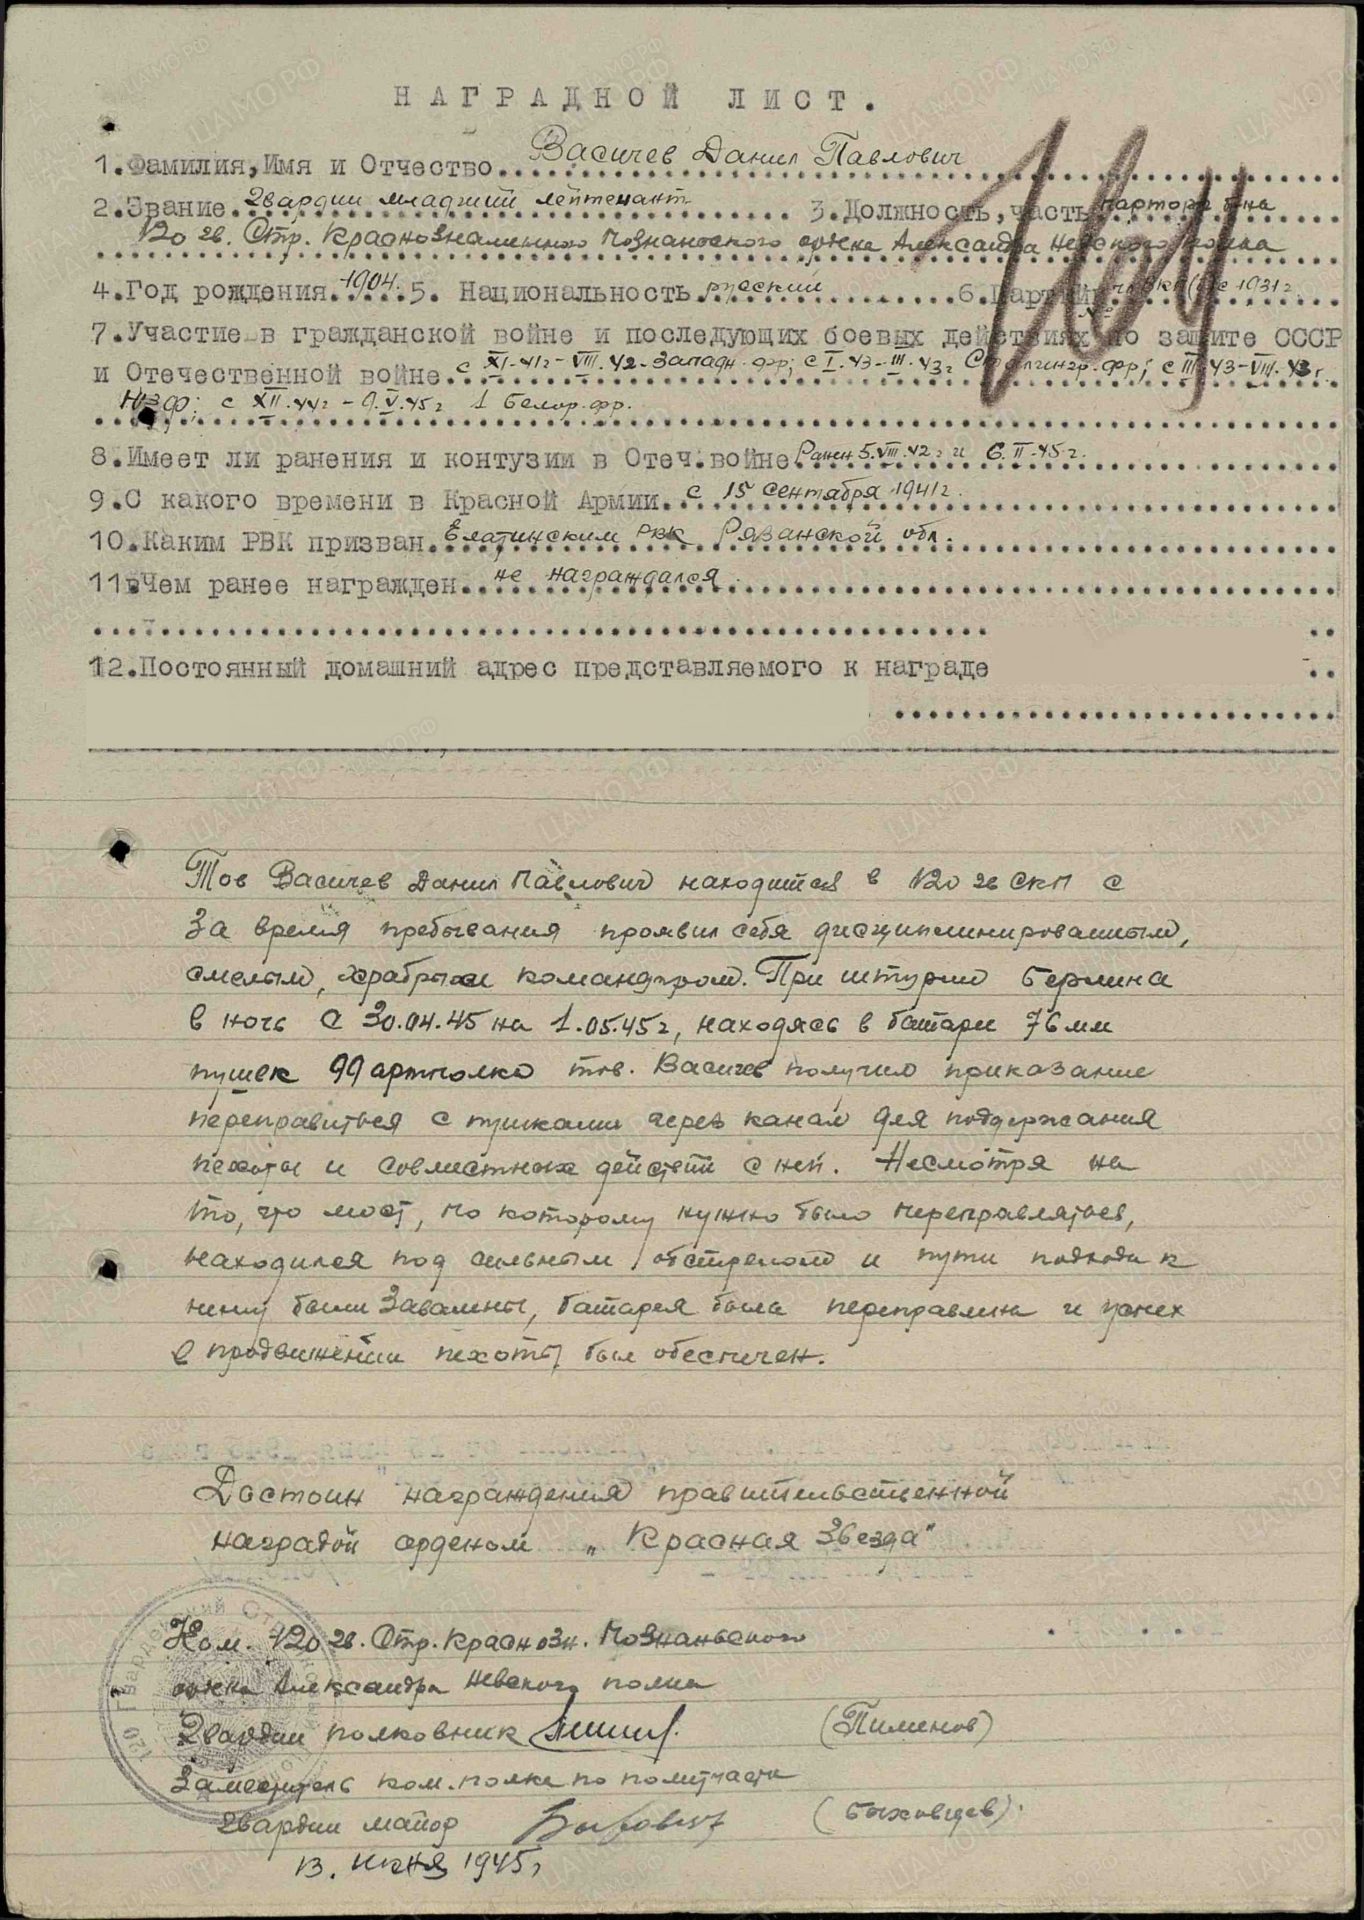 НАГРАДНОЙ ЛИСТ.
1.Фамилия,Имя и Отчество Васичев Данил Павлович
2.Звание Гвардии младший лейтенант 3.Должность,часть парторг б-на
120 гв. Стр. Краснознаменного Познаньского оржена Александра Невского полка
4.Год рождения 1904. 5. Национальность русский 6.Партийн. чл. ВКП(б) с 1931г
7.Участие в гражданской войне и последующих боевых действиях по защите СССР
и Отечественной войне с XI-41г-VIII.42-Западн. фр; с I.43-III.43г Сталингр.фр; с III.43-VIII.43г.
ЮЗФ; с XII.44г - 9.V.45г 1 Белор.фр.
8.Имеет ли ранения и контузии в Отеч.войне Ранен 5.VIII.42г и 6.II.45г.
9.С какого времени в Красной Армии с 15 сентября 1941г.
10.Каким РВК призван Елатинским РВК Рязанской обл.
11.Чем ранее награжден не награждался
12.Постоянный домашний адрес представляемого к награде
Тов Васичев Данил Павлович находится в 120 гв СКП с
За время пребывания проявил себя дисциплинированным,
смелым, храбрым командиром. При штурме Берлина
в ночь с 30.04.45 на 1.05.45г, находясь в батареи 76 мм
пушек 99 артполка тов. Васичев получил приказание
переправиться с пушками через канал для поддержания
пехоты и совместных действий с ней. Несмотря на
то, что мост, по которому нужно было переправляться,
находился под сильным обстрелом и пути подхода к
нему были завалены, батарея была переправлена и успех
в продвижении пехоты был обеспечен.
Достоин награждения правительственной
наградой орденом „Красная Звезда"
Ком. 120 гв. Стр. Краснозн. Познаньского
оржена Александра Невского полка
Гвардии полковник (Пименов)
Заместитель ком. полка по политчасти
Гвардии майор (Быховцев).
13. июня 1945г